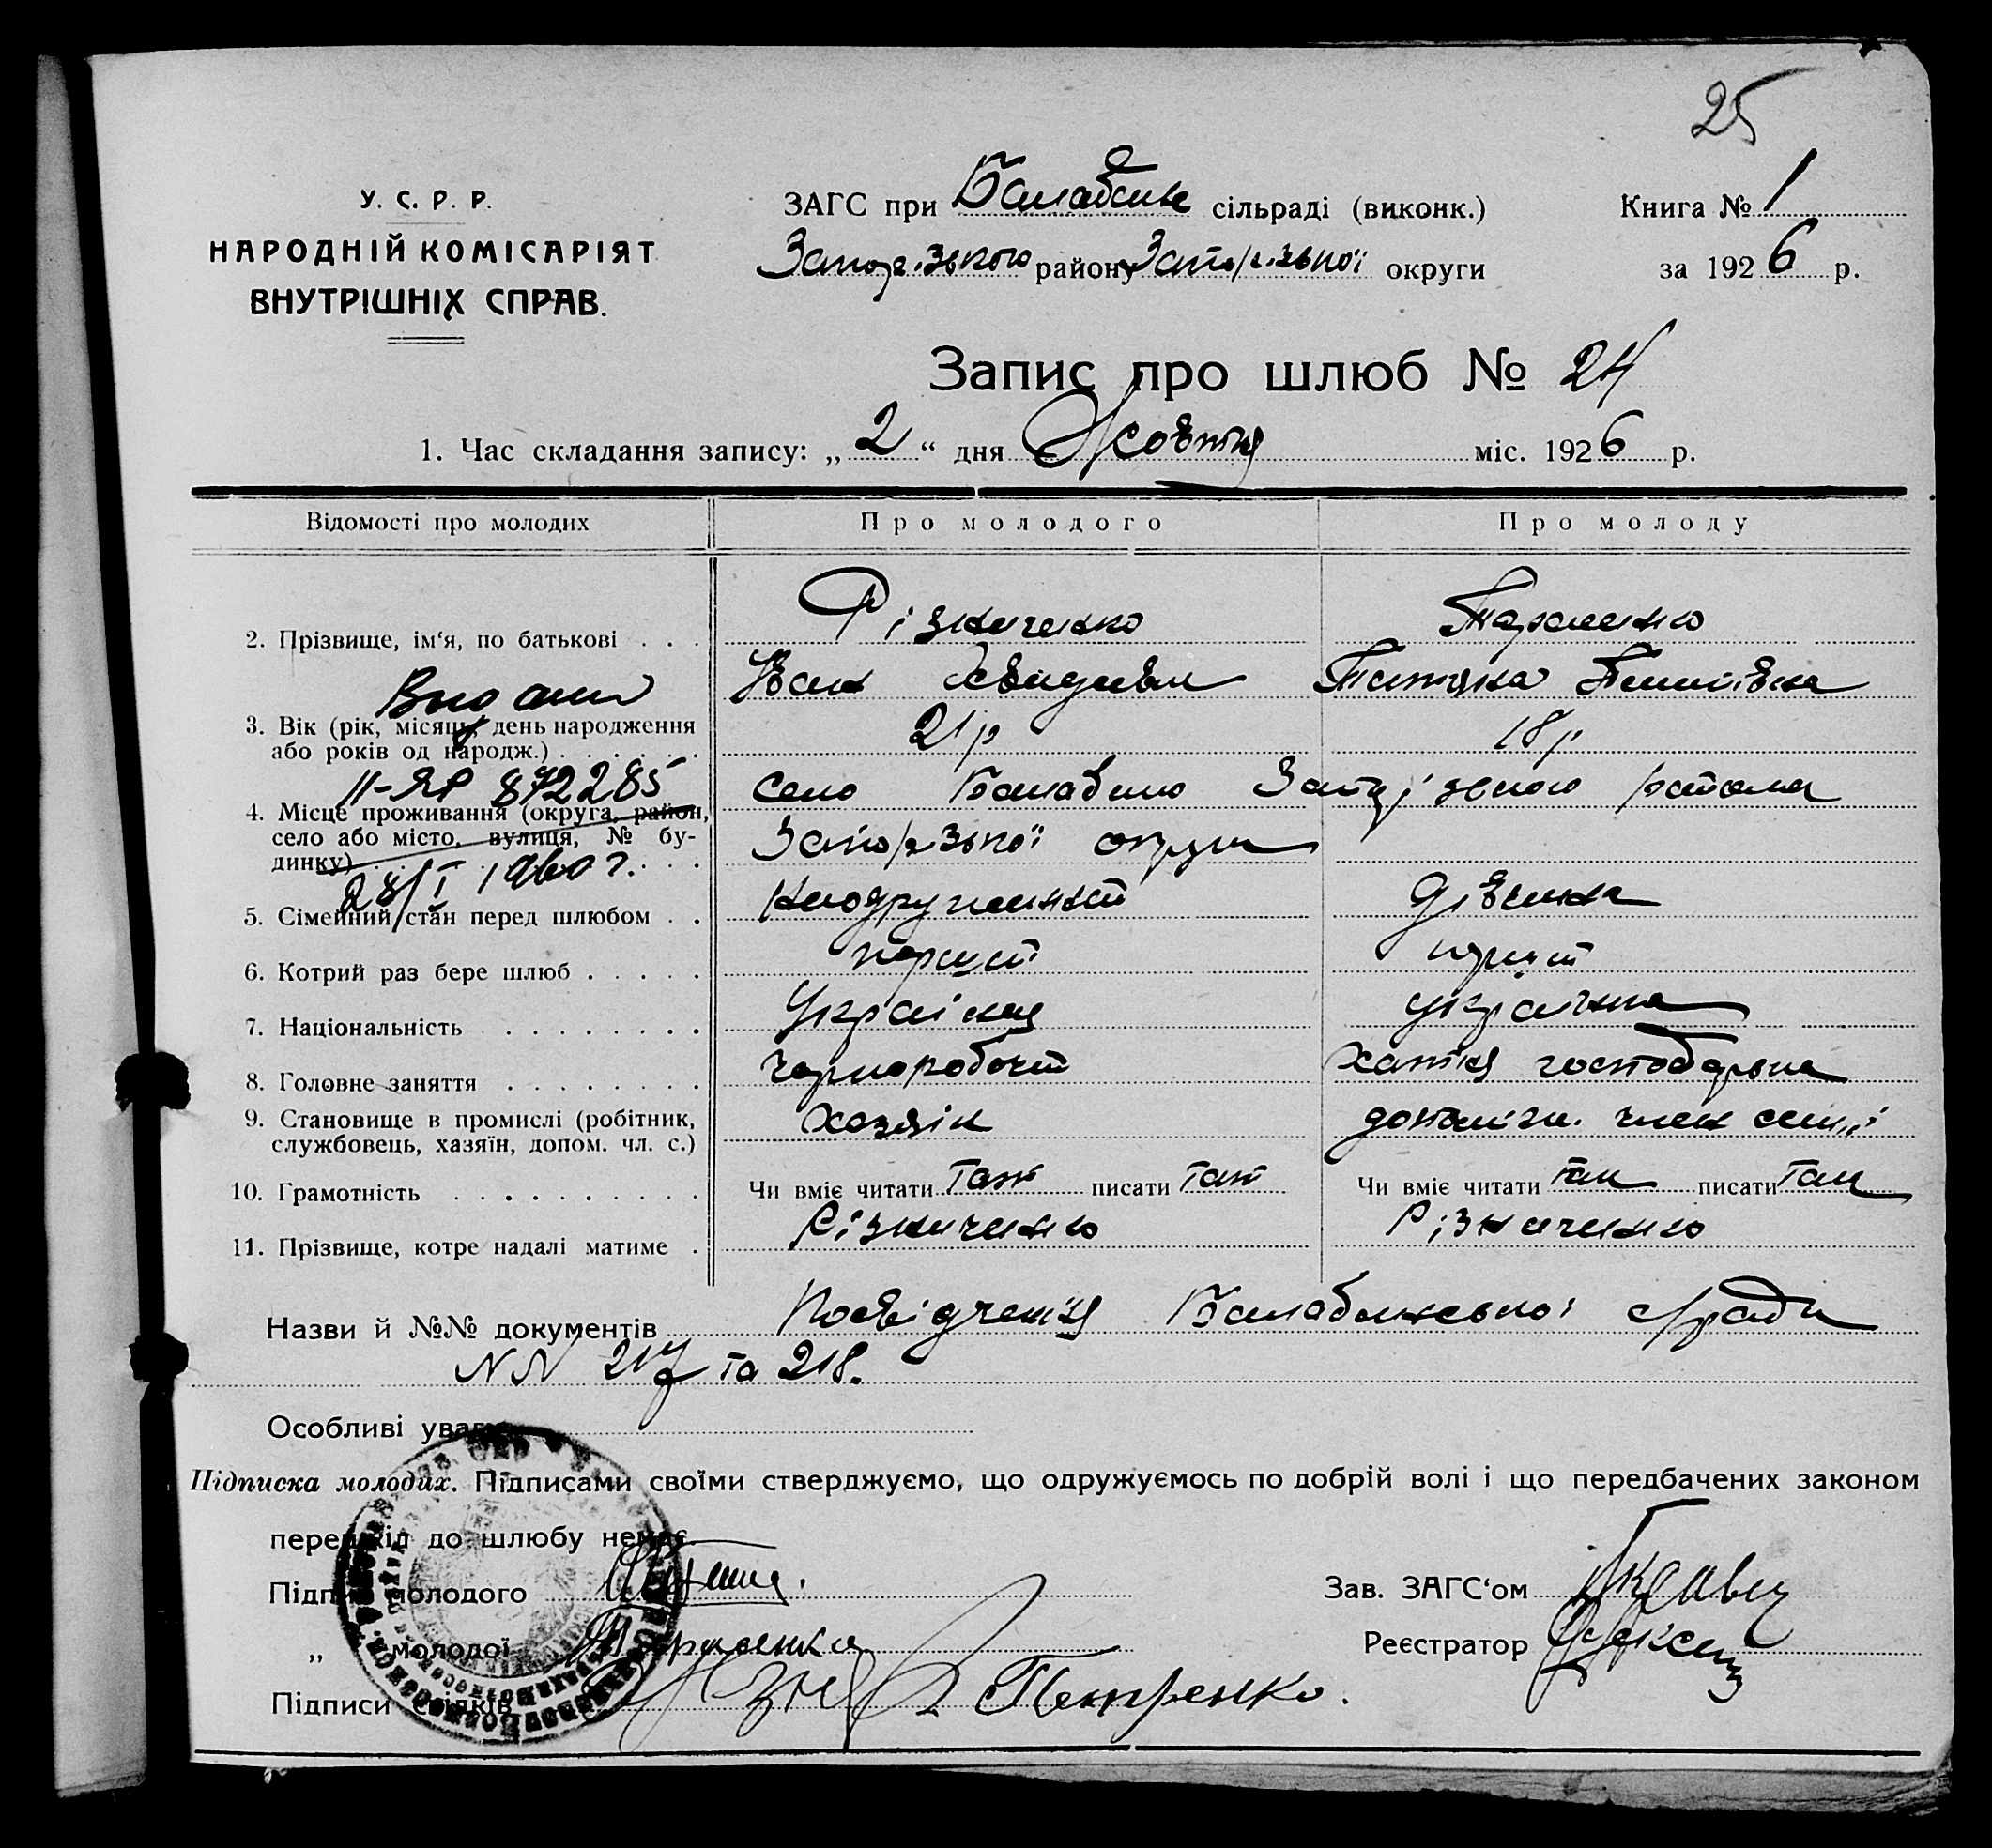 25
У. С. Р. Р.
НАРОДНІЙ КОМІСАРІЯТ
ВНУТРІШНІХ СПРАВ.
ЗАГС при сільраді (виконк.)
Книга № 1
району округи
за 1926 р.
Запис про шлюб № 24
1. Час складання запису: „2“ дня Жовтня міс. 1926 р.
Відомості про молодих Про молодого Про молоду
2. Прізвище, ім‘я, по батькові . . . Різниченко Тараненко
Іван Тетяна
3. Вік (рік, місяць, день народження
або років од народж.) . . . . . . 21 р 18 р
II-ЯР 872285
4. Місце проживання (округа, район,
село або місто, вулиця, № бу-
динку) . . . .
село Балабино Запорізького району
Запорізької округи
28/I 1960 г.
5. Сімейний стан перед шлюбом . . дівчина
6. Котрий раз бере шлюб . . . . . перший перший
7. Національність . . . . . . . . Українец українка
8. Головне заняття . . . . . . . . Чорноробочий Хатня господарька
9. Становище в промислі (робітник,
службовець, хазяїн, допом. чл. с.) Хазяін член семьї
10. Грамотність . . . . . . . . . . Чи вміє читати так писати так Чи вміє читати так писати так
11. Прізвище, котре надалі матиме . Різниченко Різниченко
Назви й №№ документів Посвідчення Балабинської с/ради
NN 217 та 218.
Особливі уваги
Підписка молодих. Підписами своїми стверджуємо, що одружуємось по добрій волі і що передбачених законом
перешкід до шлюбу немає.
Підпис молодого
Зав. ЗАГС‘ом
„ молодої
Реєстратор
Підписи свідків Петренко.